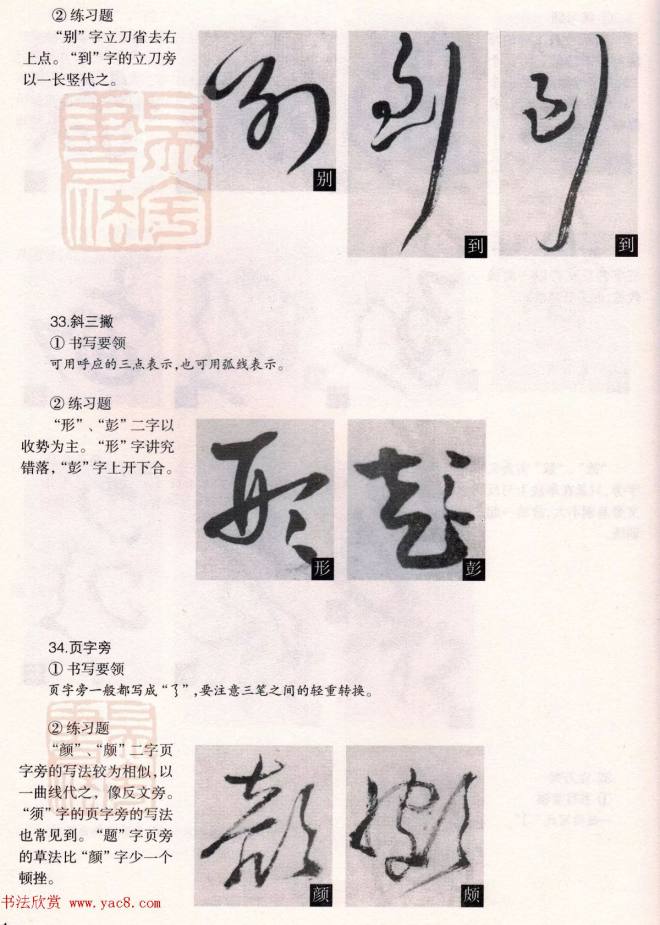 ② 练习题
“别”字立刀省去右
上点。“到”字的立刀旁
以一长竖代之。
别
到
到
33.斜三撇
① 书写要领
可用呼应的三点表示,也可用弧线表示。
② 练习题
“形”、“彭”二字以
收势为主。“形”字讲究
错落,“彭”字上开下合。
形
彭
34.页字旁
① 书写要领
页字旁一般都写成“ ”,要注意三笔之间的轻重转换。
② 练习题
“颜”、“颇”二字页
字旁的写法较为相似,以
一曲线代之,像反文旁。
“须”字的页字旁的写法
也常见到。“题”字页旁
的草法比“颜”字少一个
顿挫。
颜
颇
书法欣赏 www.yac8.com